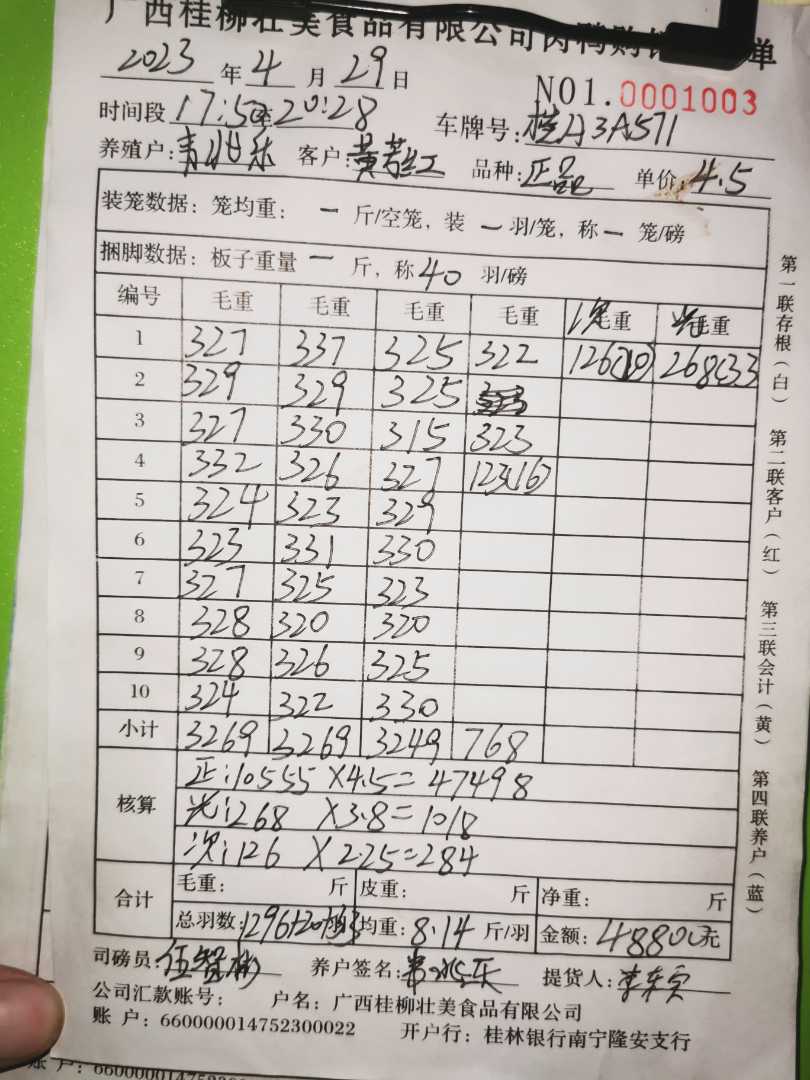 广西桂柳壮美食品有限公司肉鸭购销 单
2023 年 4 月 29 日
NO1.0001003
时间段 17:50至20:28 车牌号: 桂A3A571
养殖户: 客户: 黄 红 品种: 正品 单价: 4.5
装笼数据: 笼均重: 一 斤/空笼, 装 一 羽/笼, 称 一 笼/磅
捆脚数据: 板子重量 一 斤, 称 40 羽/磅
编号 毛重 毛重 毛重 毛重 次毛重 光毛重
1 327 337 325 322 126(20) 268(33
2 329 329 325
3 327 330 315 323
4 332 326 327 123(16)
5 324 323 329
6 323 331 330
7 327 325 323
8 328 320 320
9 328 326 325
10 324 322 330
小计 3269 3269 3249 768
核算
正:10555 X4.5=47498
光:268 X3.8=1018
次:126 X2.25=284
合计
毛重: 斤 皮重: 斤 净重: 斤
总羽数: 1296+20+33 均重: 8.14 斤/羽 金额: 48800元
司磅员: 伍智彬 养户签名: 提货人:
公司汇款账号: 户名: 广西桂柳壮美食品有限公司
账 户: 660000014752300022 开户行: 桂林银行南宁隆安支行
第一联存根(白) 第二联客户(红) 第三联会计(黄) 第四联养户(蓝)
账 户: